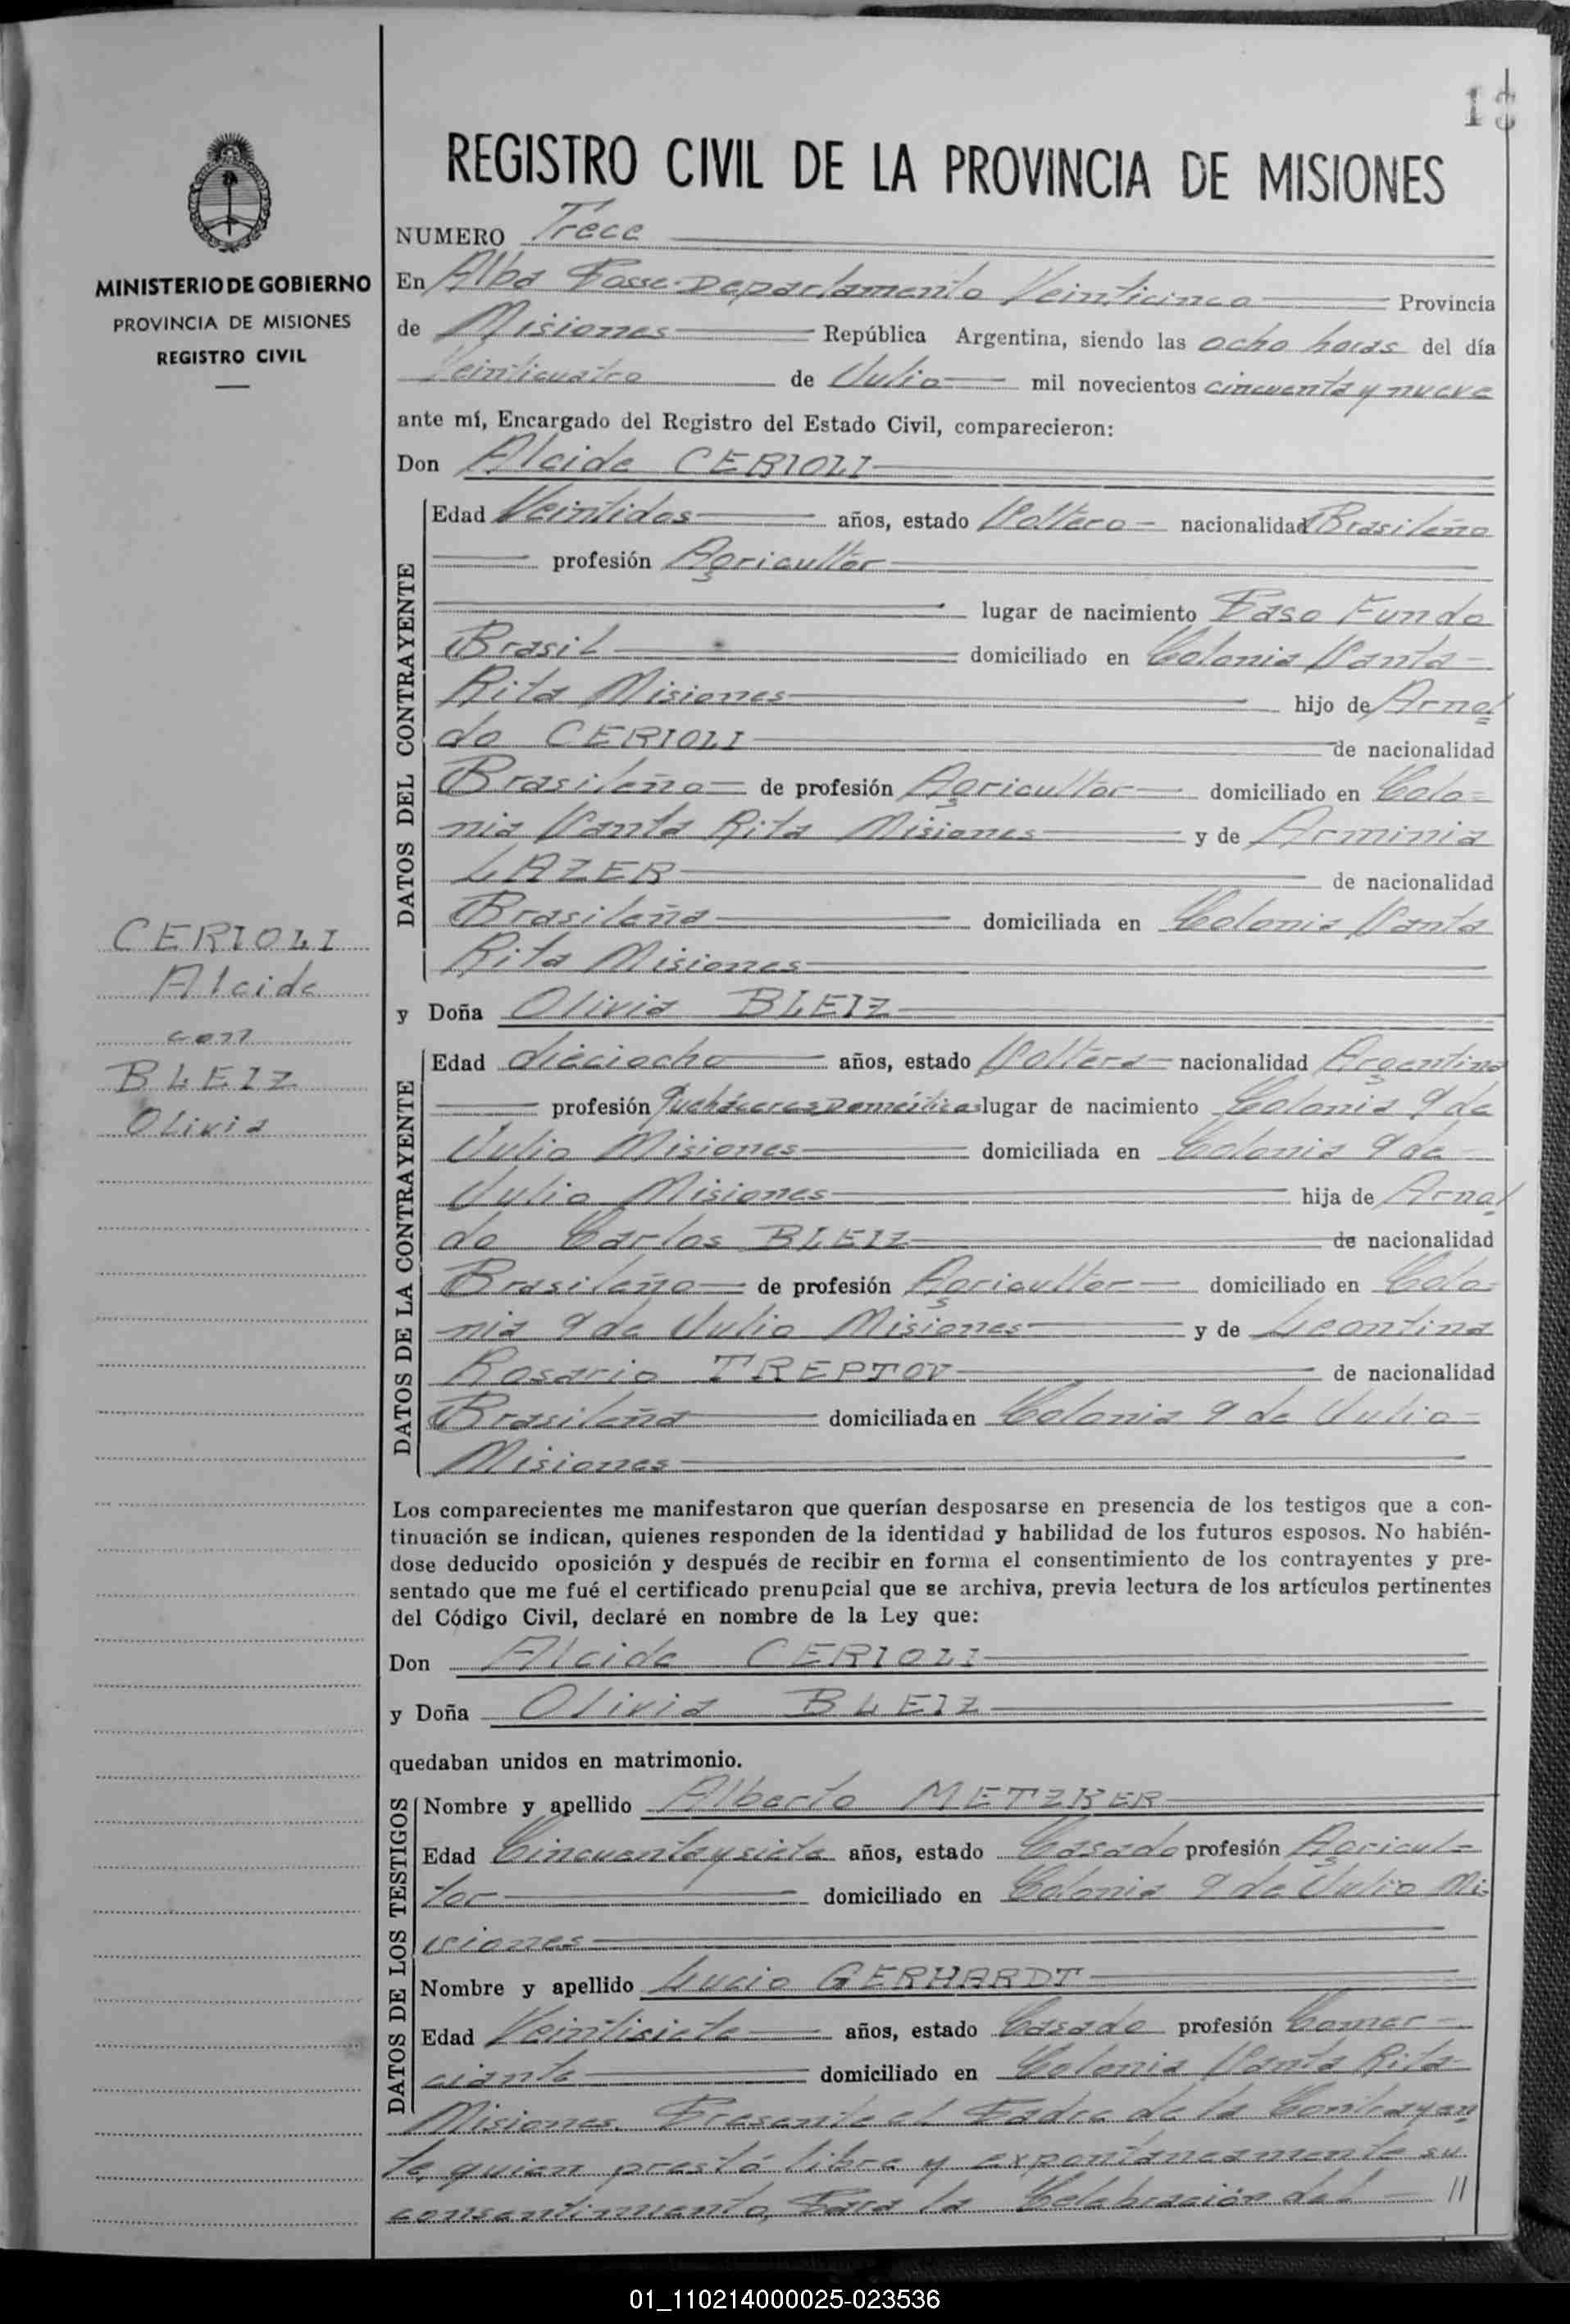 13
REGISTRO CIVIL DE LA PROVINCIA DE MISIONES
MINISTERIO DE GOBIERNO
PROVINCIA DE MISIONES
REGISTRO CIVIL
CERIOLI
Alcide
con
BLEIZ
Olivia
NUMERO Trece
En Alba Posse-Departamento Veinticinco Provincia
de Misiones República Argentina, siendo las ocho horas del día
Veinticuatro de Julio mil novecientos cincuenta y nueve
ante mí, Encargado del Registro del Estado Civil, comparecieron:
Don Alcide CERIOLI
DATOS DEL CONTRAYENTE
Edad Veintidos años, estado Soltero nacionalidad Brasileño
profesión Agricultor
lugar de nacimiento Paso Fundo
Brasil domiciliado en Colonia Santa
Rita Misiones hijo de Arnal
do CERIOLI de nacionalidad
Brasileño de profesión Agricultor domiciliado en Colo-
nia Santa Rita Misiones y de Arminia
LAZER de nacionalidad
Brasileña domiciliada en Colonia Santa
Rita Misiones
y Doña Olivia BLEIZ
DATOS DE LA CONTRAYENTE
Edad dieciocho años, estado Soltera nacionalidad Argentina
profesión Quehaceres Domésticos lugar de nacimiento Colonia 9 de
Julio Misiones domiciliada en Colonia 9 de
Julio Misiones hija de Arnal
do Carlos BLEIZ de nacionalidad
Brasileño de profesión Agricultor domiciliado en Colo-
nia 9 de Julio Misiones y de Leontina
Rosario TREPTOV de nacionalidad
Brasileña domiciliada en Colonia 9 de Julio
Misiones
Los comparecientes me manifestaron que querían desposarse en presencia de los testigos que a con-
tinuación se indican, quienes responden de la identidad y habilidad de los futuros esposos. No habién-
dose deducido oposición y después de recibir en forma el consentimiento de los contrayentes y pre-
sentado que me fué el certificado prenupcial que se archiva, previa lectura de los artículos pertinentes
del Código Civil, declaré en nombre de la Ley que:
Don Alcide CERIOLI
y Doña Olivia BLEIZ
quedaban unidos en matrimonio.
DATOS DE LOS TESTIGOS
Nombre y apellido Alberto METZKER
Edad Cincuenta y siete años, estado Casado profesión Agricul-
tor domiciliado en Colonia 9 de Julio Mi-
siones
Nombre y apellido Lucio GERHARDT
Edad Veintisiete años, estado Casado profesión Comer-
ciante domiciliado en Colonia Santa Rita
Misiones. Presente el Padre de la Contrayen
te, quien prestó libre y expontaneamente su
consentimiento, Para la Celebración del - //
01_110214000025-023536